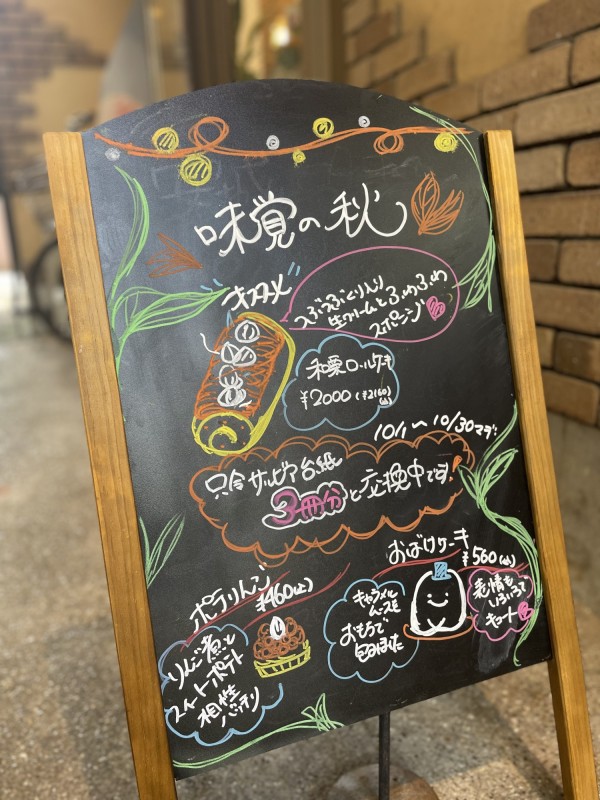 味覚の秋
オススメ
つぶつぶくり入り
生クリームとふわふわ
スポンジ
和栗ロールケーキ
¥2000(¥2160込)
10/1〜10/30マデ
只今サルビア台紙
3冊分と応換中です!
おばけケーキ
¥560(込)
ポテりんご
¥460(込)
キャラメル
ムースを
おもちで
包みました
表情も
いろいろで
キュート
りんご煮と
スイートポテト
相性
バッチリ